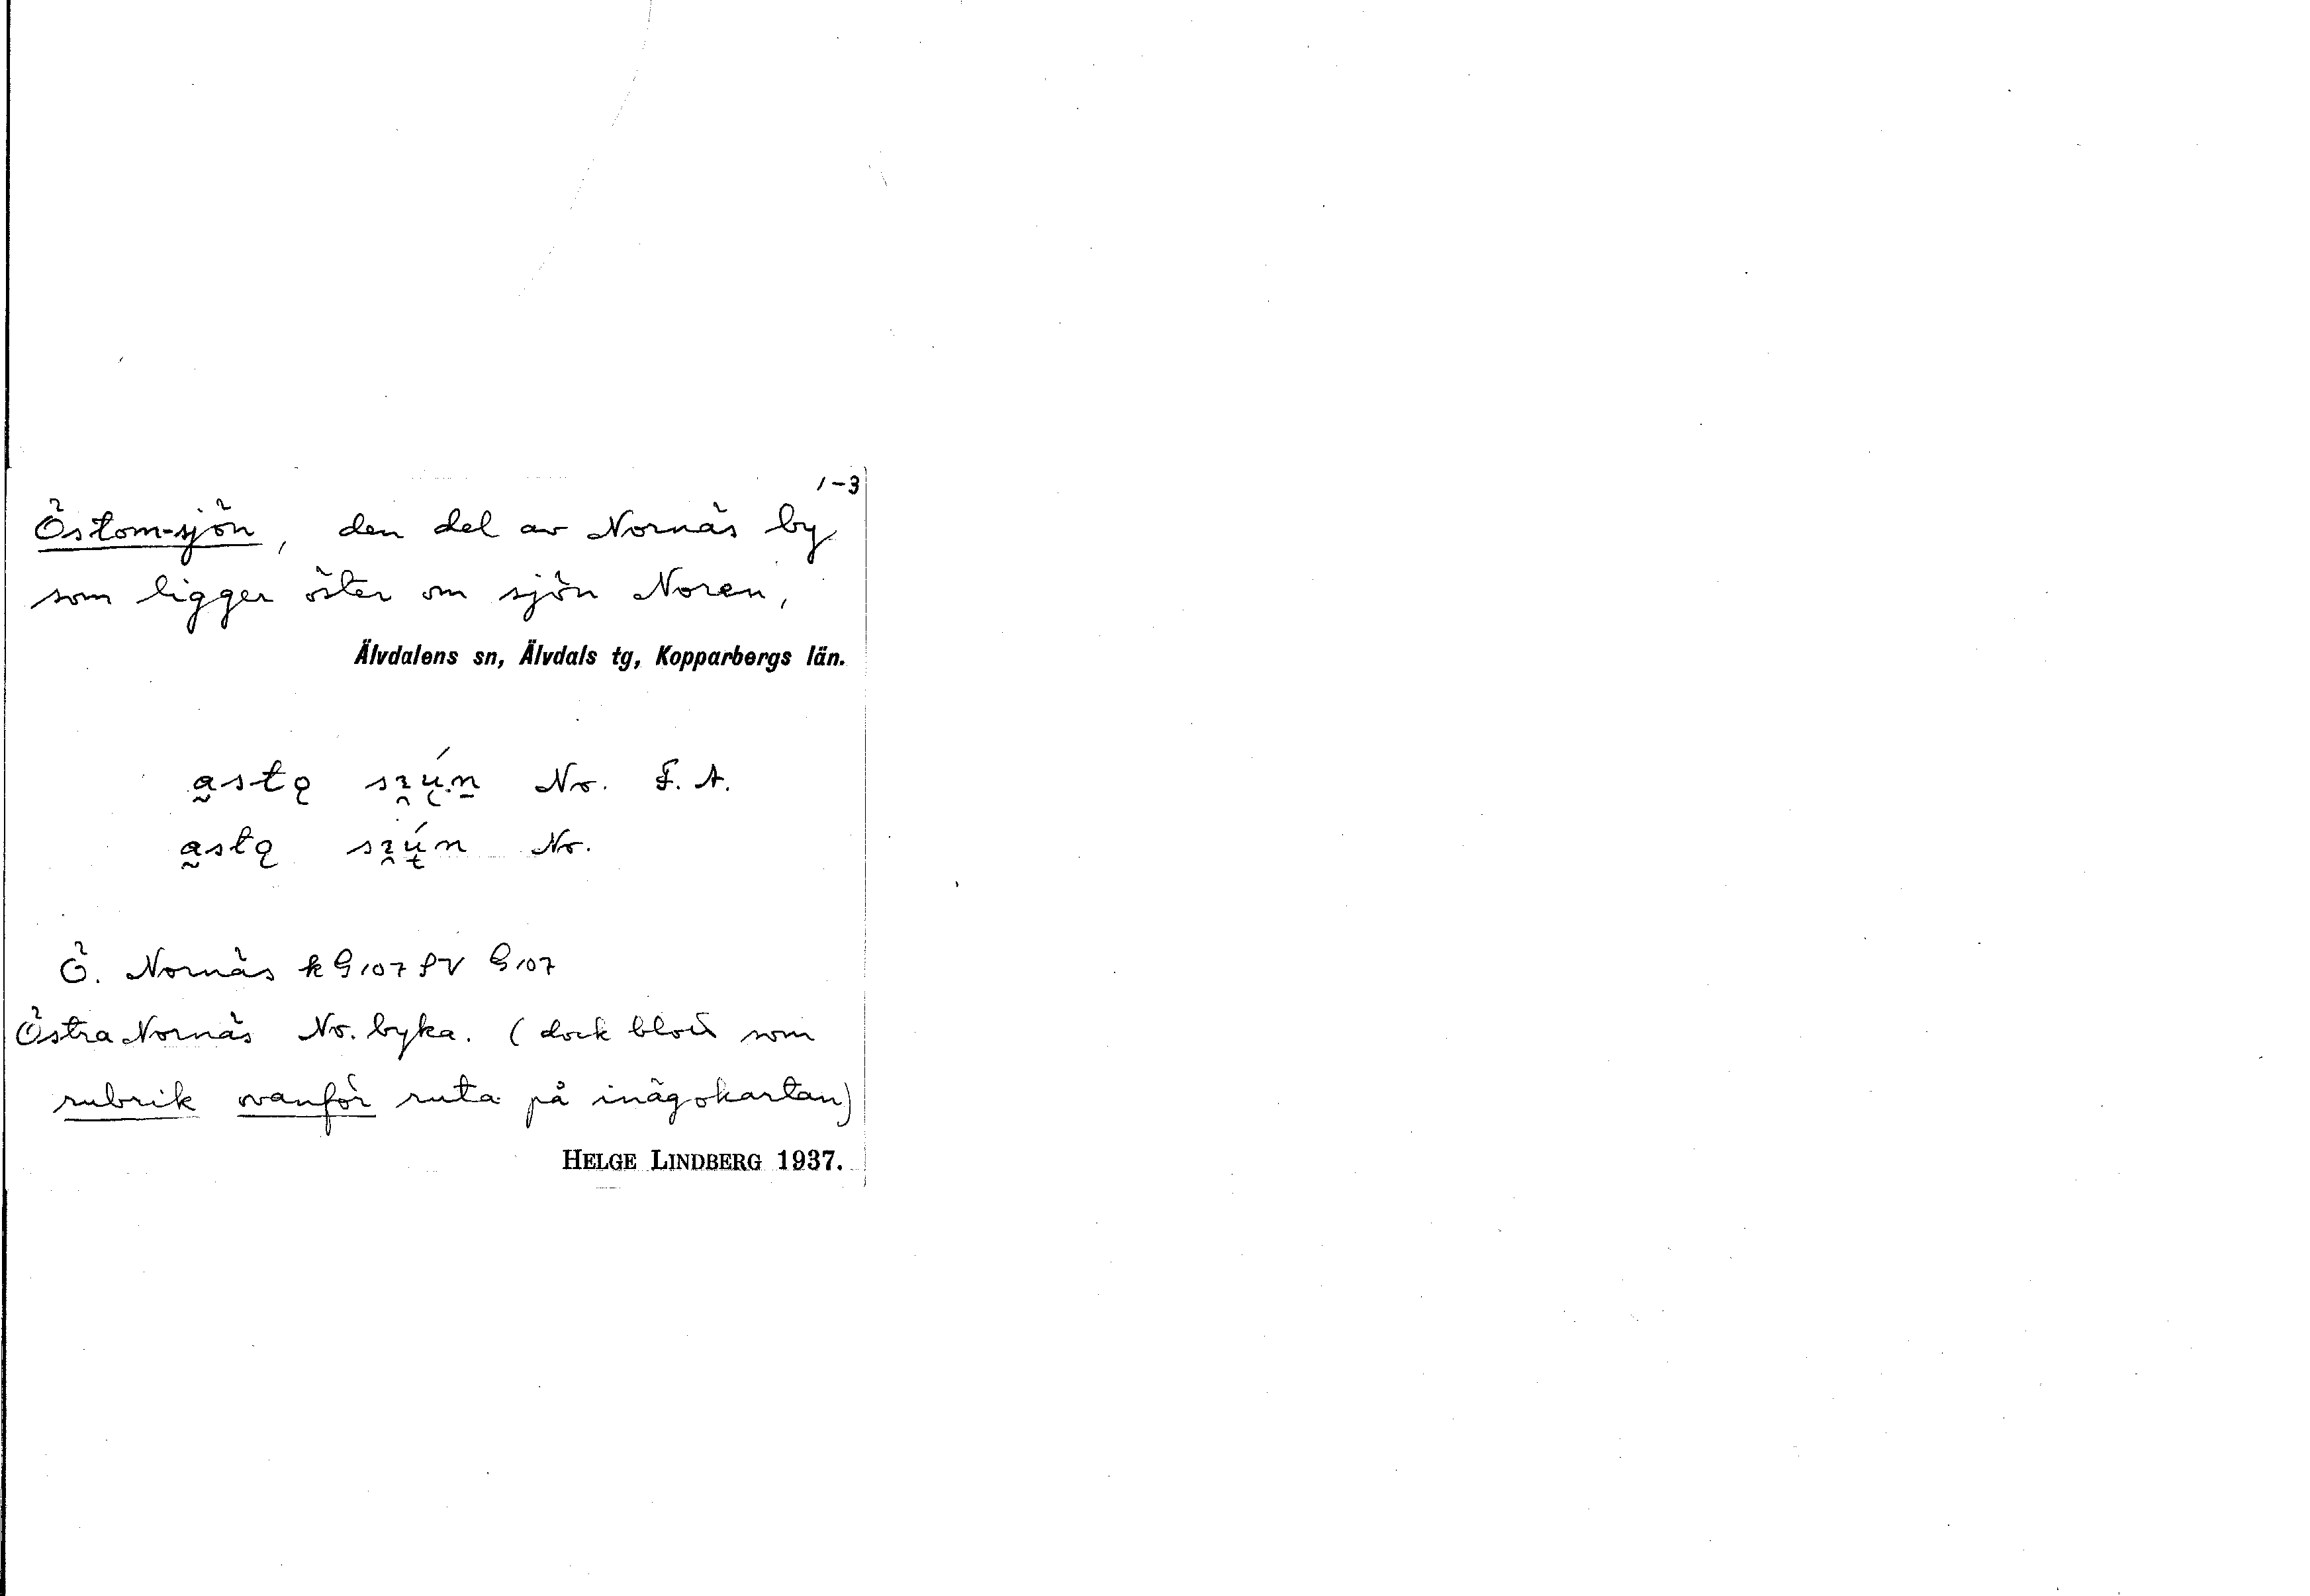 1-3
Östom-sjön, den del av Nornäs by
som ligger öster om sjön Noren,
Älvdalens sn, Älvdals tg, Kopparbergs län.
No. F. A.
No.
Ö. Nornäs k G107 G107
Östra Nornäs No. byka. (dock blott som
rubrik ovanför ruta på inägokartan)
HELGE LINDBERG 1937.